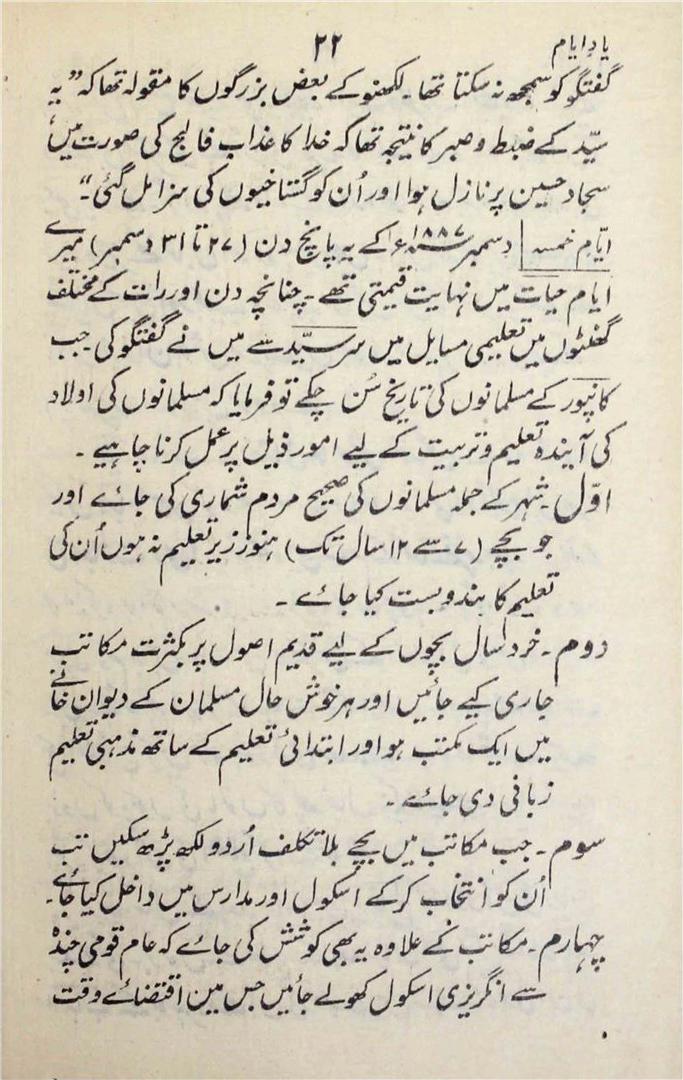 یادِ ایام ۲۲
گفتگو کو سمجھ نہ سکتا تھا۔ لکھنؤ کے بعض بزرگوں کا مقولہ تھا کہ "یہ
سیّد کے ضبط و صبر کا نتیجہ تھا کہ خدا کا عذاب فالج کی صورت میں،
سجاد حسین پر نازل ہوا اور اُن کو گستاخیوں کی سزا مل گئی۔"
ایّامِ خمسہ دسمبر ۱۸۸۷ء کے یہ پانچ دن (۲۷ تا ۳۱ دسمبر) میرے
ایامِ حیات میں نہایت قیمتی تھے۔ چنانچہ دن اور رات کے مختلف
گھنٹوں میں تعلیمی مسایل میں سر سیّد سے میں نے گفتگو کی جب
کانپور کے مسلمانوں کی تاریخ سُن چکے تو فرمایا کہ مسلمانوں کی اولاد
کی آیندہ تعلیم و تربیت کے لیے امورِ ذیل پر عمل کرنا چاہیے۔
اوّل۔ شہر کے جملہ مسلمانوں کی صحیح مردم شماری کی جائے اور
جو بچے (۷ سے ۱۲ سال تک) ہنوز زیرِ تعلیم نہ ہوں اُن کی
تعلیم کا بندوبست کیا جائے۔
دوم۔ خرد سال بچوں کے لیے قدیم اصول پر بکثرت مکاتب
جاری کیے جائیں اور ہر خوش حال مسلمان کے دیوان خانے
میں ایک مکتب ہو اور ابتدائی تعلیم کے ساتھ مذہبی تعلیم
زبانی دی جائے۔
سوم۔ جب مکاتب میں بچے بلا تکلف اُردو لکھ پڑھ سکیں تب
اُن کو انتخاب کر کے اسکول اور مدارس میں داخل کیا جائے۔
چہارم۔ مکاتب کے علاوہ یہ بھی کوشش کی جائے کہ عام قومی چندہ
سے انگریزی اسکول کھولے جائیں جس مین اقتضائے وقت